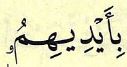 بِأَيْدِيهِمُۥ